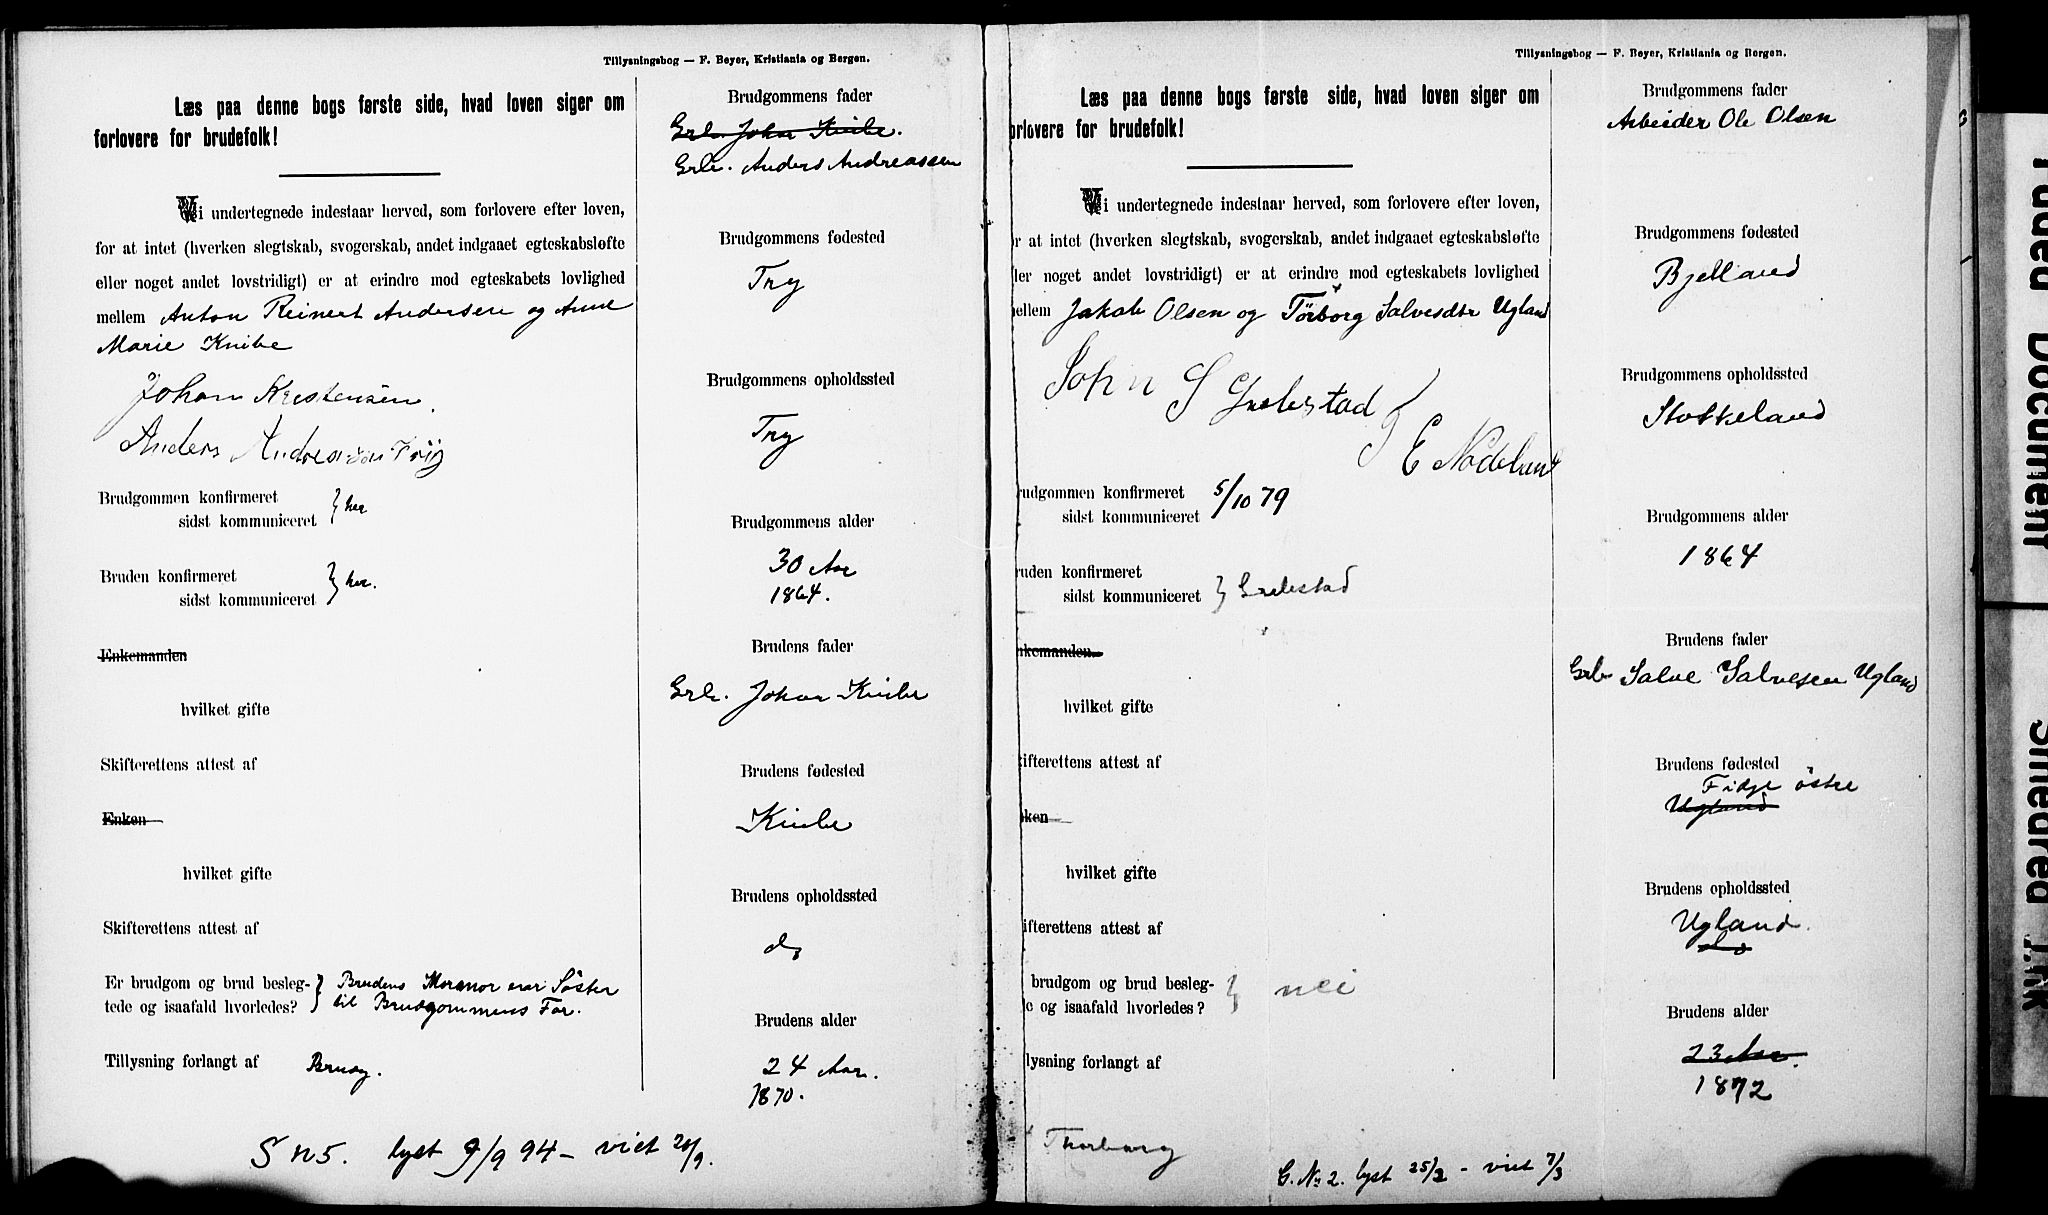 Tillysningsbog — F. Beyer, Kristiania og Bergen.
Læs paa denne bogs første side, hvad loven siger om
forlovere for brudefolk!
Vi undertegnede indestaar herved, som forlovere efter loven,
for at intet (hverken slegtskab, svogerskab, andet indgaaet egteskabsløfte
eller noget andet lovstridigt) er at erindre mod egteskabets lovlighed
mellem Anton Reinert Andersen og Anne
Marie Knibe
Johan Kristensen
Anders Andreassen Trÿ
Brudgommen konfirmeret
sidst kommuniceret } her
Bruden konfirmeret
sidst kommuniceret } her.
Enkemanden
hvilket gifte
Skifterettens attest af
Enken
hvilket gifte
Skifterettens attest af
Er brudgom og brud besleg- } Brudens Mormor var Söster
tede og isaafald hvorledes? } til Brudgommens Far.
Tillysning forlangt af Brudg.
Brudgommens fader
Grbr. Johan Knibe.
Grbr. Anders Andreassen
Brudgommens fødested
Try
Brudgommens opholdssted
Try
Brudgommens alder
30 Aar
1864.
Brudens fader
Grbr. Johan Knibe
Brudens fødested
Knibe
Brudens opholdssted
do
Brudens alder
24 Aar.
1870.
S n 5. lyst 9/9 94 – viet 20/9.
Tillysningsbog — F. Beyer, Kristiania og Bergen.
Læs paa denne bogs første side, hvad loven siger om
orlovere for brudefolk!
Vi undertegnede indestaar herved, som forlovere efter loven,
r at intet (hverken slegtskab, svogerskab, andet indgaaet egteskabsløfte
ler noget andet lovstridigt) er at erindre mod egteskabets lovlighed
ellem Jakob Olsen og Törborg Salvesdtr Ugland
John S Grebestad
E Nodeland
rudgommen konfirmeret 5/10 79
sidst kommuniceret
ruden konfirmeret
sidst kommuniceret } Grebestad
nkemanden
hvilket gifte
kifterettens attest af
ken
hvilket gifte
ifterettens attest af
brudgom og brud besleg- } nei
e og isaafald hvorledes?
lysning forlangt af
Brudgommens fader
Arbeider Ole Olsen
Brudgommens fødested
Bjelland
Brudgommens opholdssted
Stokkeland
Brudgommens alder
1864
Brudens fader
Grbr Salve Salvesen Ugland
Brudens fødested
Fidje östre
Ugland
Brudens opholdssted
Ugland.
do
Brudens alder
23 Aar.
1872
Thorborg
G. No 2. lyst 25/2 – viet 7/3
Faded Document
Smeared Ink